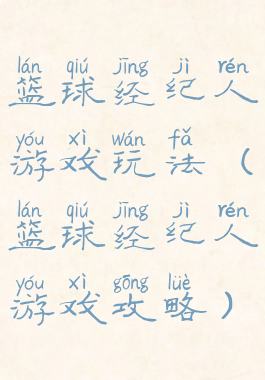 lán qiú jīng jì rén
篮球经纪人
yóu xì wán fǎ
游戏玩法（
lán qiú jīng jì rén
篮球经纪人
yóu xì gōng lüè
游戏攻略）